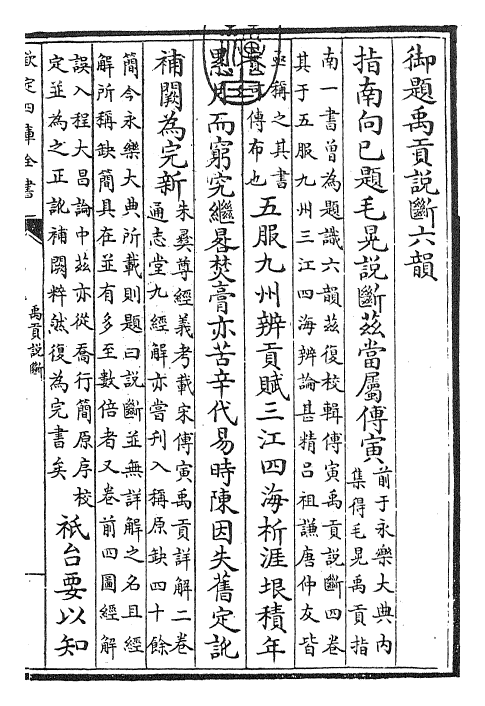 御題禹貢說斷六韻
指南向已題毛晃說斷茲當屬傅寅
前于永樂大典内
集得毛晃禹貢指
南一書曾為題識六韻茲復校輯傅寅禹貢說斷四卷
其于五服九州三江四海辨論甚精呂祖謙唐仲友皆
亟稱之其書
可傳布也
五服九州辨貢賦三江四海析涯垠積年
累月而窮究繼晷焚膏亦苦辛代易時陳因失舊定訛
補闕為完新
朱彝尊經義考載宋傅寅禹貢詳解二卷
通志堂九經解亦嘗刊入稱原缺四十餘
簡今永樂大典所載則題曰說斷並無詳解之名且經
解所稱缺簡具在並有多至數倍者又卷前四圖經解
誤入程大昌論中茲亦從喬行簡原序校
定並為之正訛補闕粹然復為完書矣
祇台要以知
欽定四庫全書
禹貢說斷